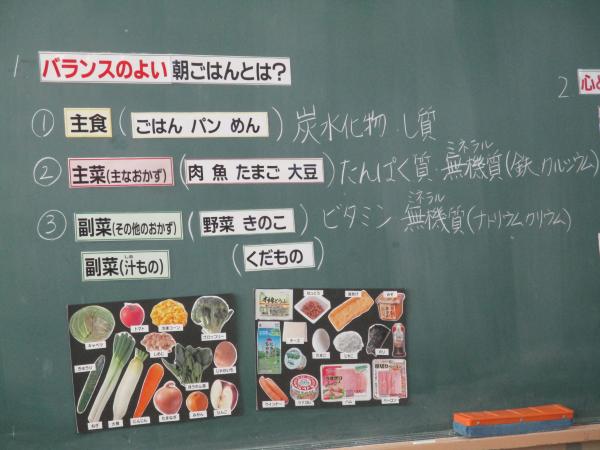 1 バランスのよい 朝ごはんとは?
① 主食 (ごはん パン めん) 炭水化物 し質
② 主菜(主なおかず) (肉 魚 たまご 大豆) たんぱく質 無機質(鉄、カルシウム)
ミネラル
③ 副菜(その他のおかず) (野菜 きのこ) ビタミン 無機質(ナトリウムカリウム)
ミネラル
副菜(汁もの) (くだもの)
しる
2 心と
キャベツ
トマト
ブロッコリー
しめじ
きゅうり
ほうれん草
じゃがいも
ねぎ
大根
にんじん
たまねぎ
みかん
りんご
納とう
みそ
チーズ
たまご
のり
ウインナー
ハム
ベーコン